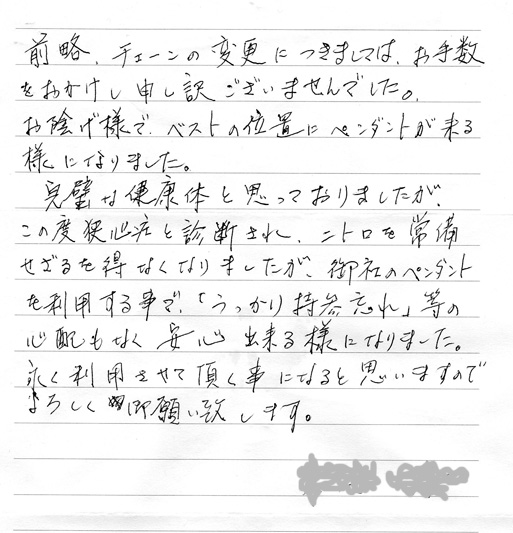 前略、チェーンの変更につきましては、お手数
をおかけし申し訳ございませんでした。
お陰げ様で、ベストの位置にペンダントが来る
様になりました。
完璧な健康体と思っておりましたが、
この度狭心症と診断され、ニトロを常備
せざるを得なくなりましたが、御社のペンダント
を利用する事で、「うっかり持参忘れ」等の
心配もなく安心出来る様になりました。
永く利用させて頂く事になると思いますので
よろしく御願い致します。